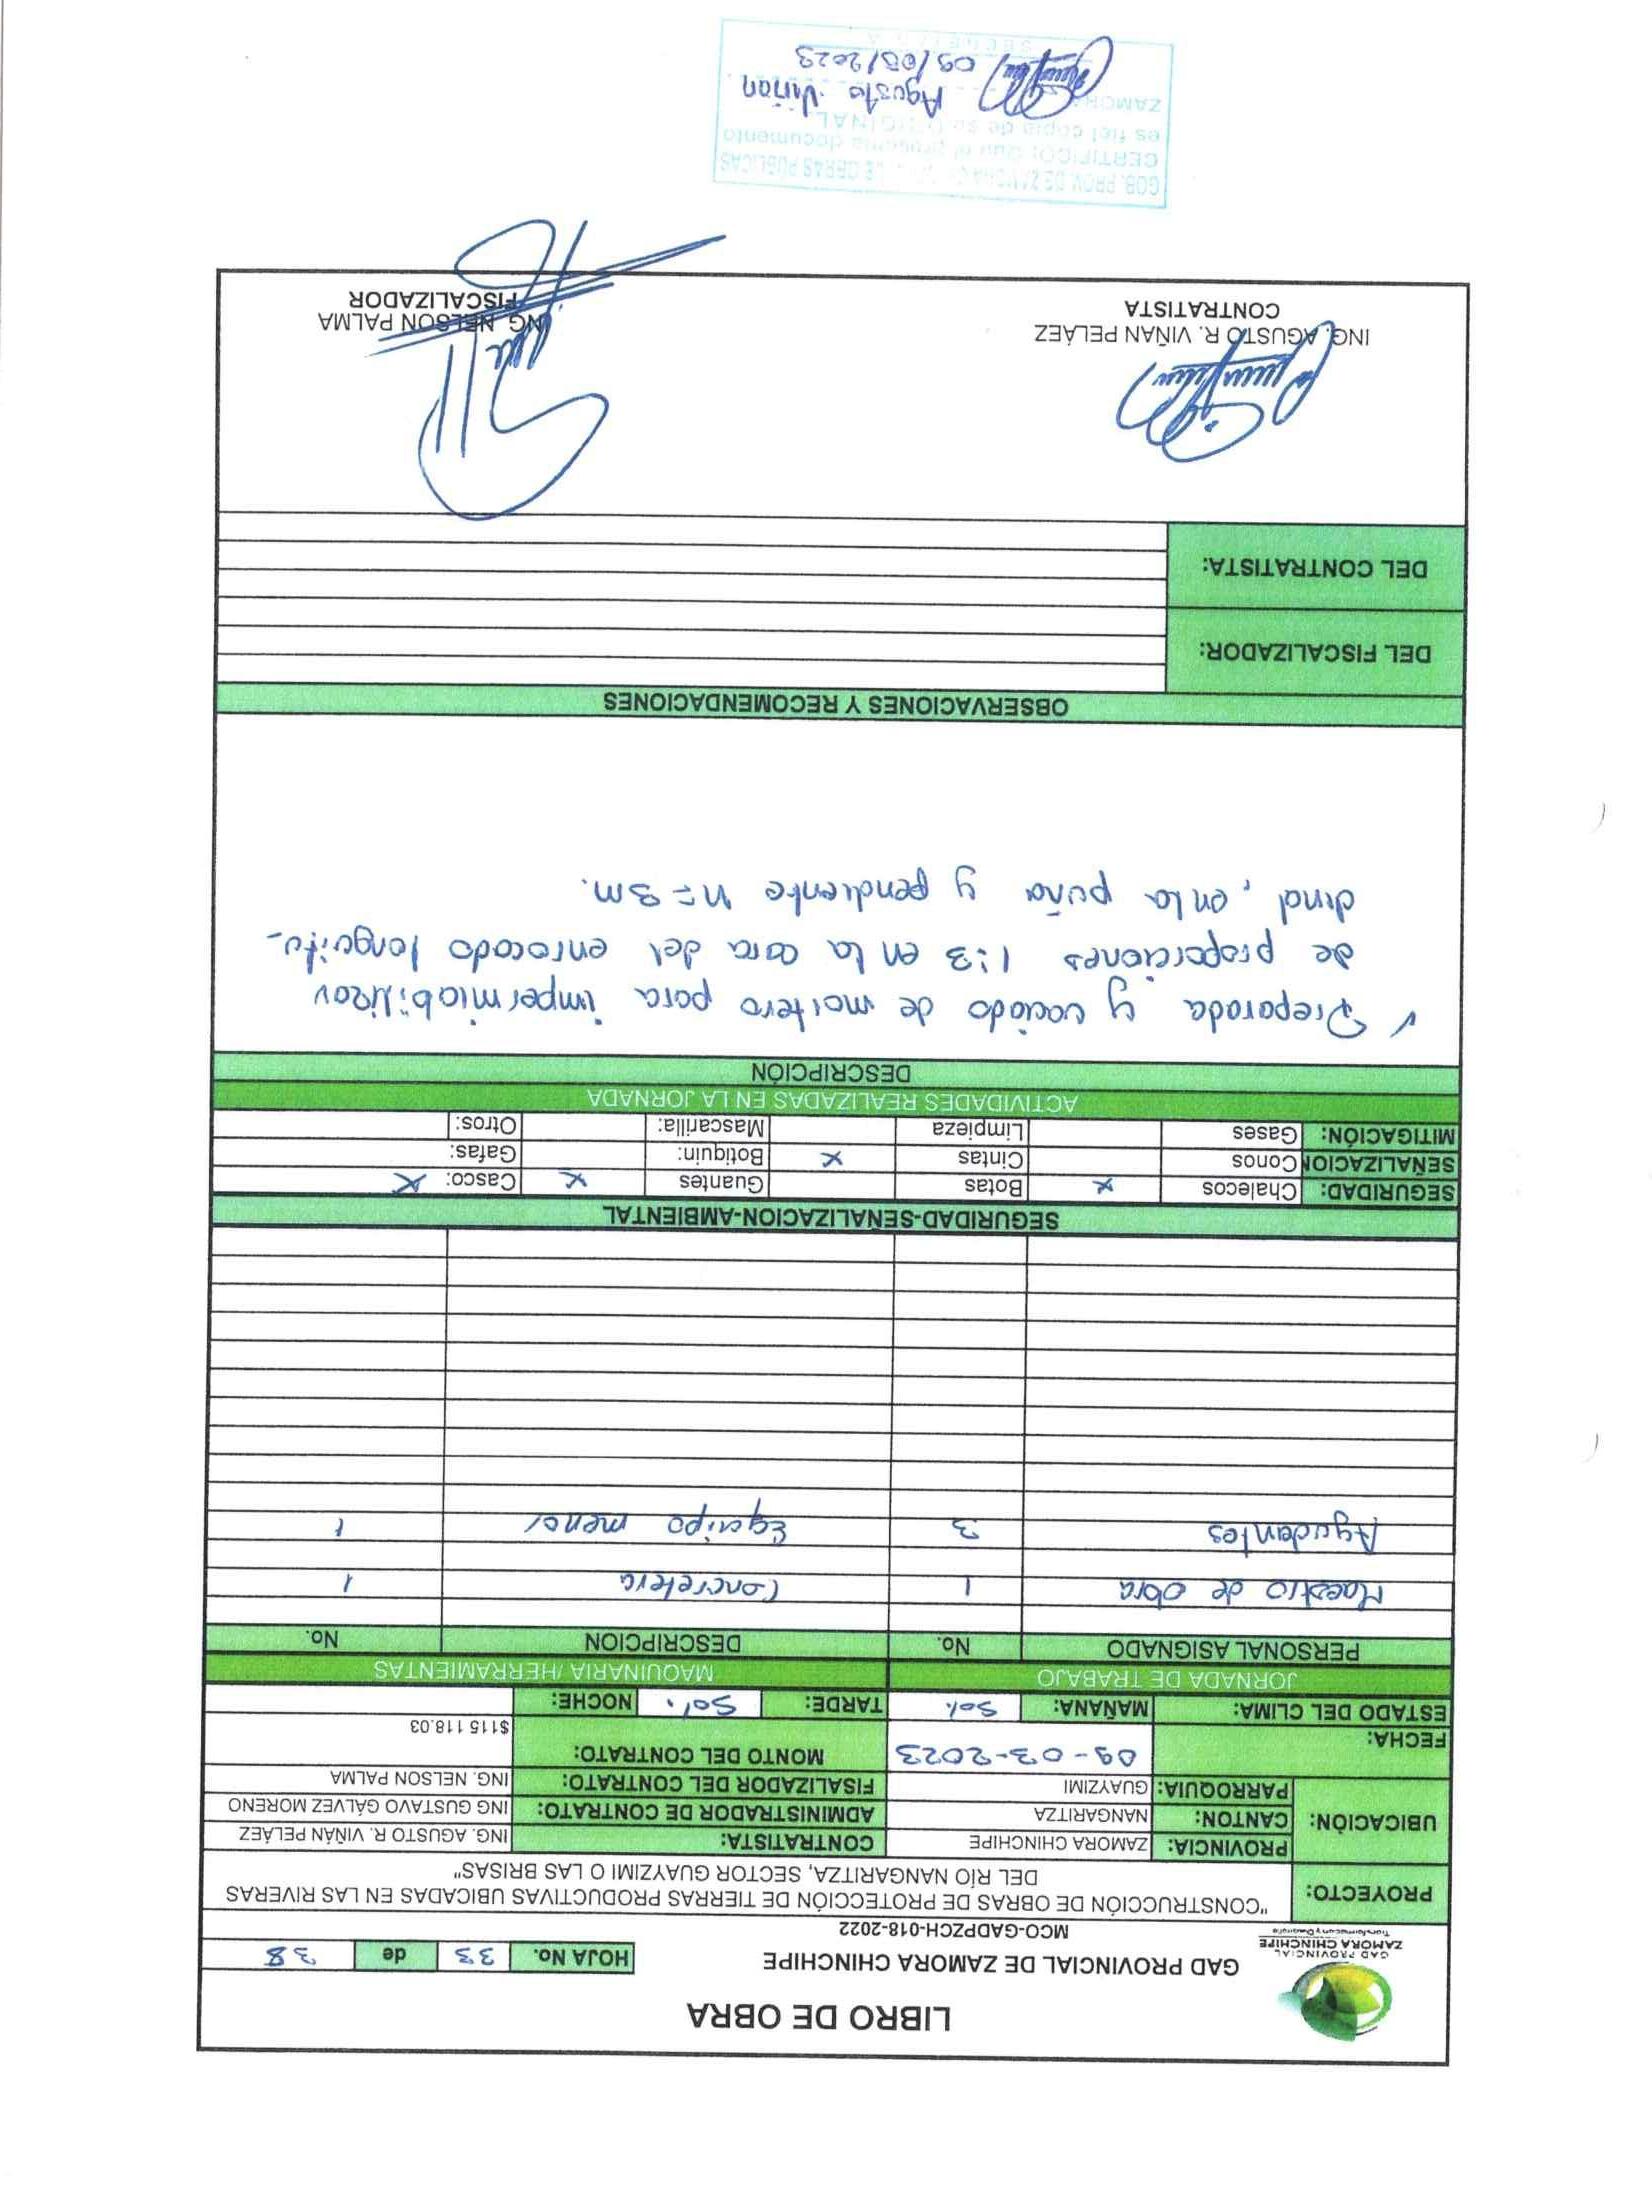 LIBRO DE OBRA
GAD PROVINCIAL
ZAMORA CHINCHIPE
GAD PROVINCIAL DE ZAMORA CHINCHIPE
HOJA No. 33 de 38
MCO-GADPZCH-018-2022
PROYECTO: "CONSTRUCCIÓN DE OBRAS DE PROTECCIÓN DE TIERRAS PRODUCTIVAS UBICADAS EN LAS RIVERAS
DEL RÍO NANGARITZA, SECTOR GUAYZIMI O LAS BRISAS"
UBICACIÓN: PROVINCIA: ZAMORA CHINCHIPE CONTRATISTA: ING. AGUSTO R. VIÑÁN PELÁEZ
CANTON: NANGARITZA ADMINISTRADOR DE CONTRATO: ING GUSTAVO GÁLVEZ MORENO
PARROQUIA: GUAYZIMI FISALIZADOR DEL CONTRATO: ING. NELSON PALMA
FECHA: 09-03-2023 MONTO DEL CONTRATO: $115 118.03
ESTADO DEL CLIMA: MAÑANA: Sol. TARDE: Sol. NOCHE:
JORNADA DE TRABAJO MAQUINARIA /HERRAMIENTAS
PERSONAL ASIGNADO No. DESCRIPCION No.
Maestro de obra 1 Concretera 1
Ayudantes 3 Equipo menor 1
SEGURIDAD-SEÑALIZACION-AMBIENTAL
SEGURIDAD: Chalecos x Botas Guantes x Casco: x
SEÑALIZACION Conos Cintas x Botiquin: Gafas:
MITIGACIÓN: Gases Limpieza Mascarilla: Otros:
ACTIVIDADES REALIZADAS EN LA JORNADA
DESCRIPCIÓN
✓ Preparada y vaciado de mortero para impermiabilizar
de proporciones 1:3 en la cara del enrocado longuitu-
dinal, en la puña y pendiente n=3m.
OBSERVACIONES Y RECOMENDACIONES
DEL FISCALIZADOR:
DEL CONTRATISTA:
ING. AGUSTO R. VIÑAN PELÁEZ ING. NELSON PALMA
CONTRATISTA FISCALIZADOR
GOB. PROV. DE ZAMORA DE OBRAS PUBLICAS
CERTIFICO: Que el presente documento
es fiel copia de su ORIGINAL
ZAMORA
Agusto Viñan
09/03/2023